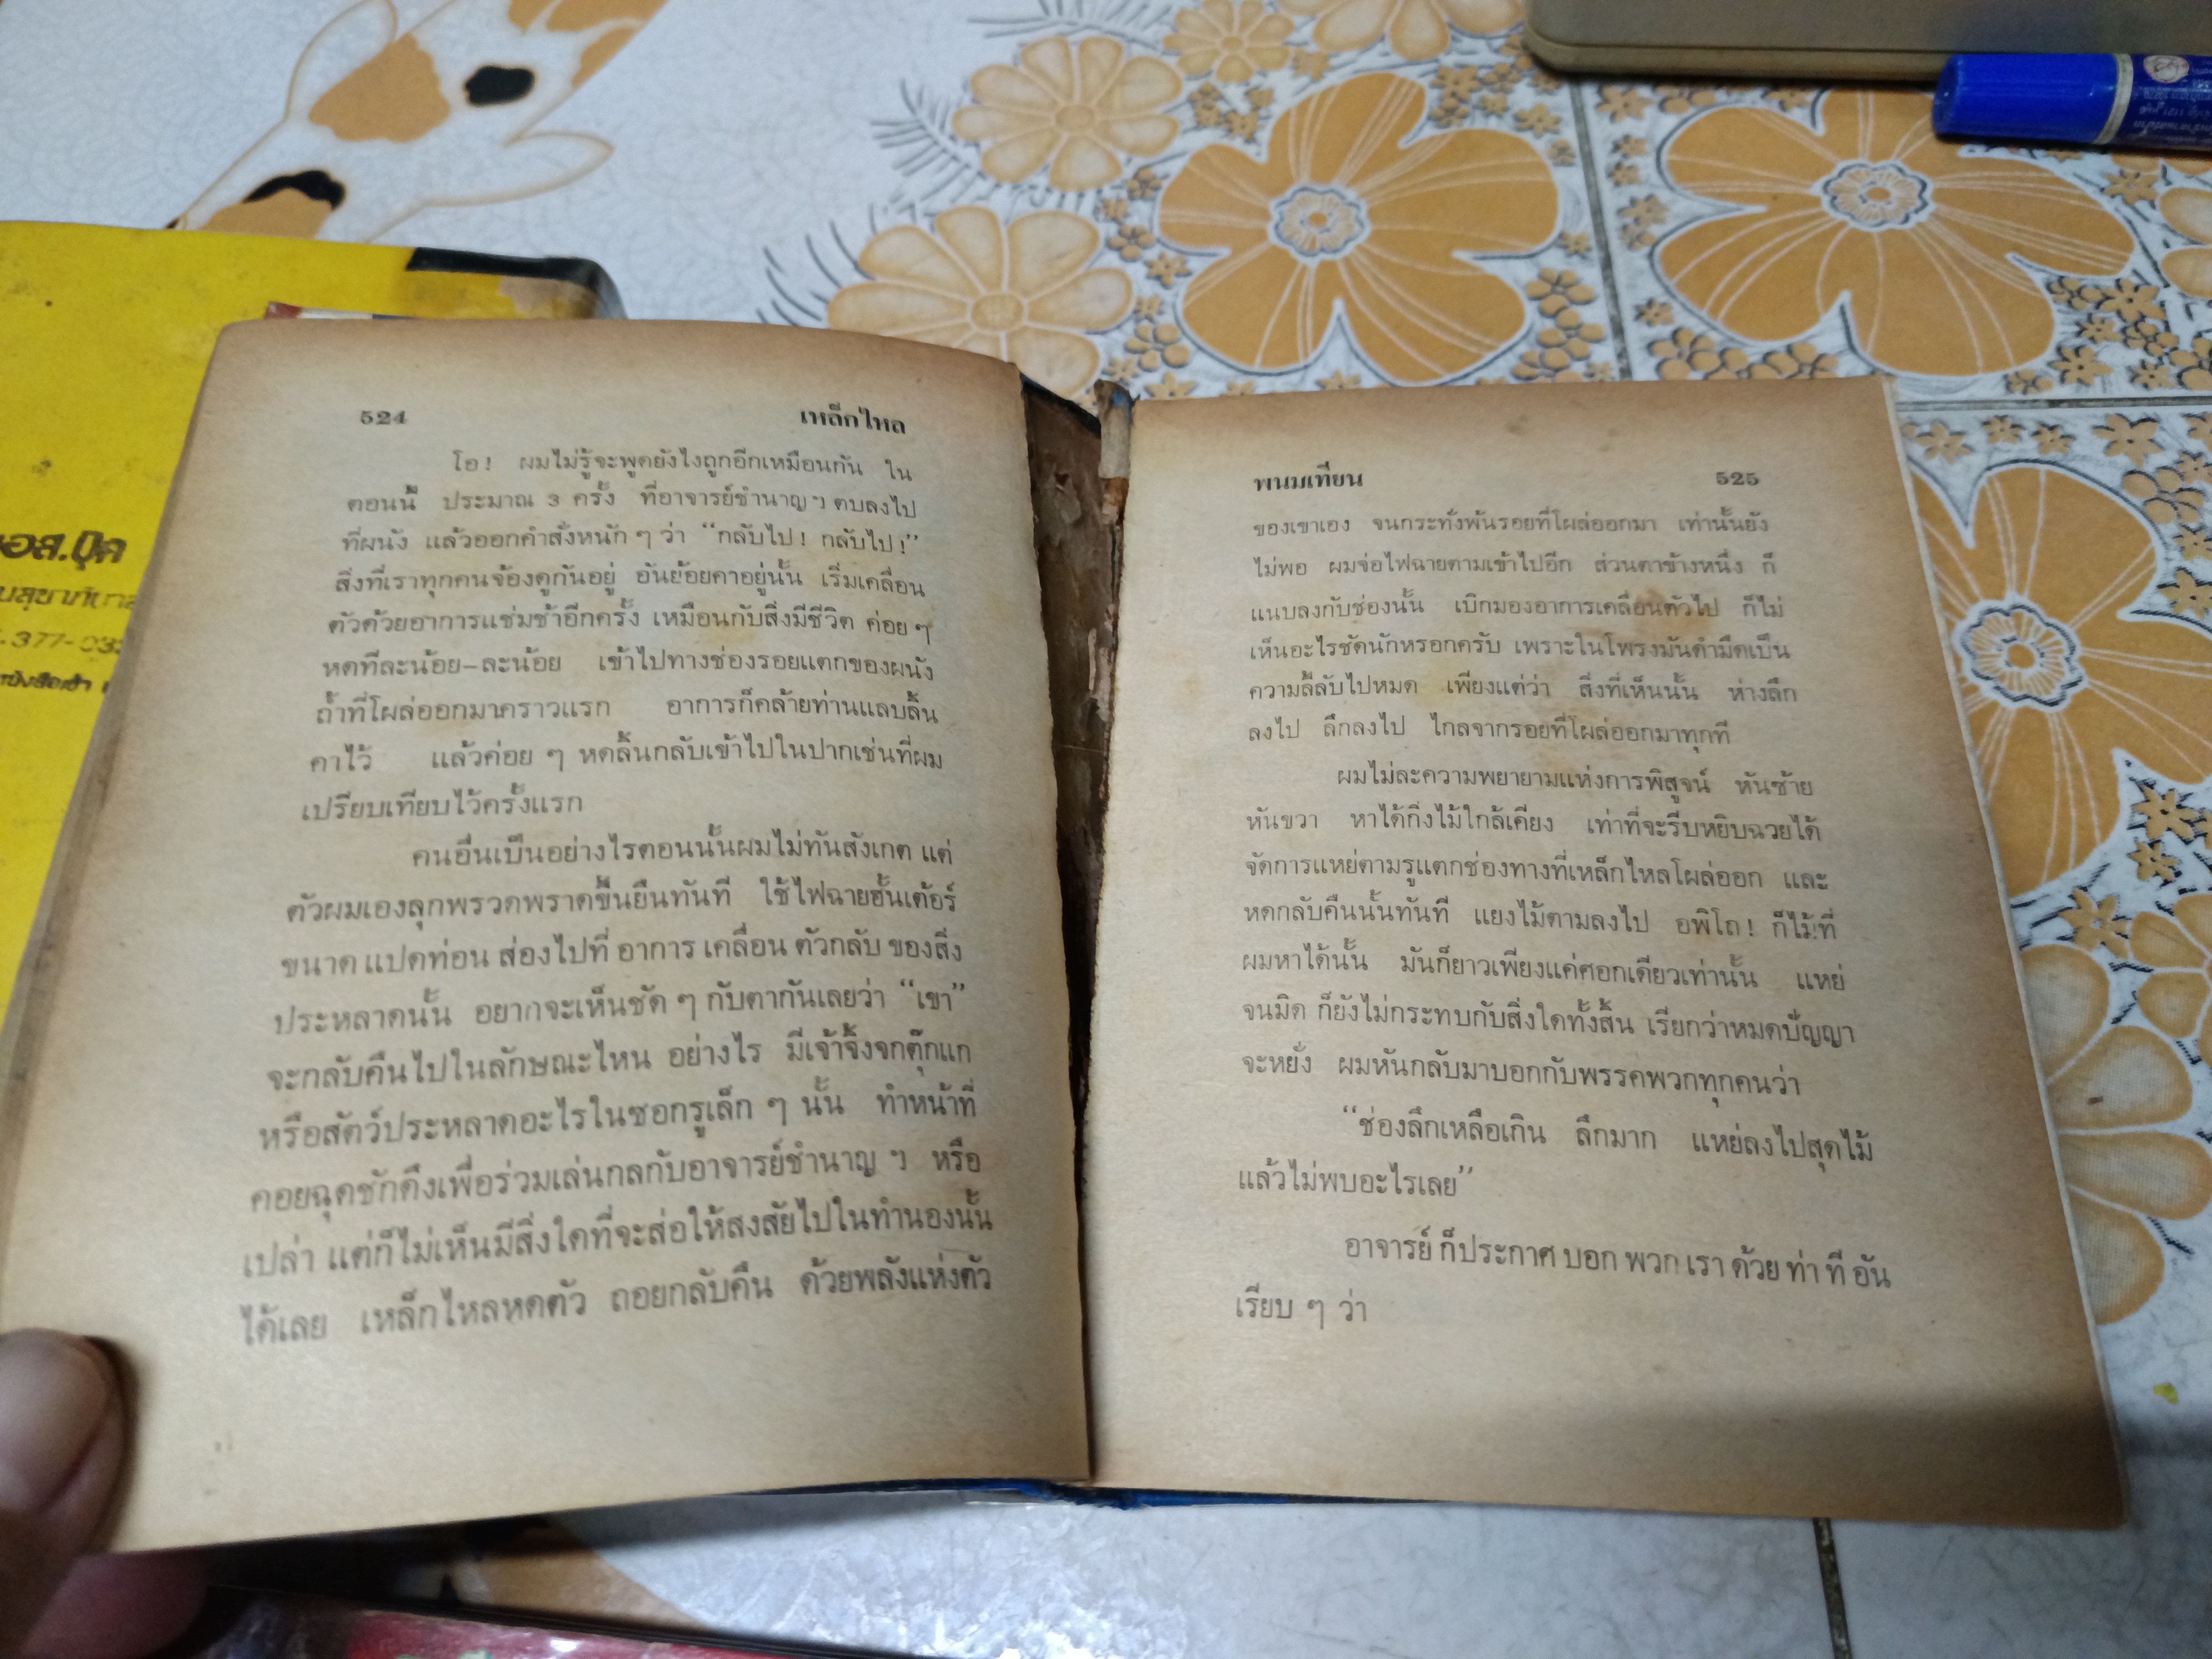 อส.บุ๊ค
377-03
524 เหล็กไหล
โอ! ผมไม่รู้จะพูดยังไงถูกอีกเหมือนกัน ใน
ตอนนี้ ประมาณ 3 ครั้ง ที่อาจารย์ชำนาญ ฯ ตบลงไป
ที่ผนัง แล้วออกคำสั่งหนัก ๆ ว่า “กลับไป! กลับไป!”
สิ่งที่เราทุกคนจ้องดูกันอยู่ อันย้อยคาอยู่นั้น เริ่มเคลื่อน
ตัวด้วยอาการแช่มช้าอีกครั้ง เหมือนกับสิ่งมีชีวิต ค่อย ๆ
หดทีละน้อย-ละน้อย เข้าไปทางช่องรอยแตกของผนัง
ถ้ำที่โผล่ออกมาคราวแรก อาการก็คล้ายท่านแลบลิ้น
คาไว้ แล้วค่อย ๆ หดลิ้นกลับเข้าไปในปากเช่นที่ผม
เปรียบเทียบไว้ครั้งแรก
คนอื่นเป็นอย่างไรตอนนั้นผมไม่ทันสังเกต แต่
ตัวผมเองลุกพรวดพราดขึ้นยืนทันที ใช้ไฟฉายฮั้นเต้อร์
ขนาด แปดท่อน ส่องไปที่ อาการ เคลื่อน ตัวกลับ ของสิ่ง
ประหลาดนั้น อยากจะเห็นชัด ๆ กับตากันเลยว่า “เขา”
จะกลับคืนไปในลักษณะไหน อย่างไร มีเจ้าจิ้งจกตุ๊กแก
หรือสัตว์ประหลาดอะไรในซอกรูเล็ก ๆ นั้น ทำหน้าที่
คอยฉุดชักดึงเพื่อร่วมเล่นกลกับอาจารย์ชำนาญ ฯ หรือ
เปล่า แต่ก็ไม่เห็นมีสิ่งใดที่จะส่อให้สงสัยไปในทำนองนั้น
ได้เลย เหล็กไหลหดตัว ถอยกลับคืน ด้วยพลังแห่งตัว
พนมเทียน 525
ของเขาเอง จนกระทั่งพ้นรอยที่โผล่ออกมา เท่านั้นยัง
ไม่พอ ผมจ่อไฟฉายตามเข้าไปอีก ส่วนตาข้างหนึ่ง ก็
แนบลงกับช่องนั้น เบิกมองอาการเคลื่อนตัวไป ก็ไม่
เห็นอะไรชัดนักหรอกครับ เพราะในโพรงมันดำมืดเป็น
ความลี้ลับไปหมด เพียงแต่ว่า สิ่งที่เห็นนั้น ห่างลึก
ลงไป ลึกลงไป ไกลจากรอยที่โผล่ออกมาทุกที
ผมไม่ละความพยายามแห่งการพิสูจน์ หันซ้าย
หันขวา หาได้กิ่งไม้ใกล้เคียง เท่าที่จะรีบหยิบฉวยได้
จัดการแหย่ตามรูแตกช่องทางที่เหล็กไหลโผล่ออก และ
หดกลับคืนนั้นทันที แยงไม้ตามลงไป อพิโถ! ก็ไม้ที่
ผมหาได้นั้น มันก็ยาวเพียงแค่ศอกเดียวเท่านั้น แหย่
จนมิด ก็ยังไม่กระทบกับสิ่งใดทั้งสิ้น เรียกว่าหมดปัญญา
จะหยั่ง ผมหันกลับมาบอกกับพรรคพวกทุกคนว่า
“ช่องลึกเหลือเกิน ลึกมาก แหย่ลงไปสุดไม้
แล้วไม่พบอะไรเลย”
อาจารย์ ก็ประกาศ บอก พวก เรา ด้วย ท่า ที อัน
เรียบ ๆ ว่า